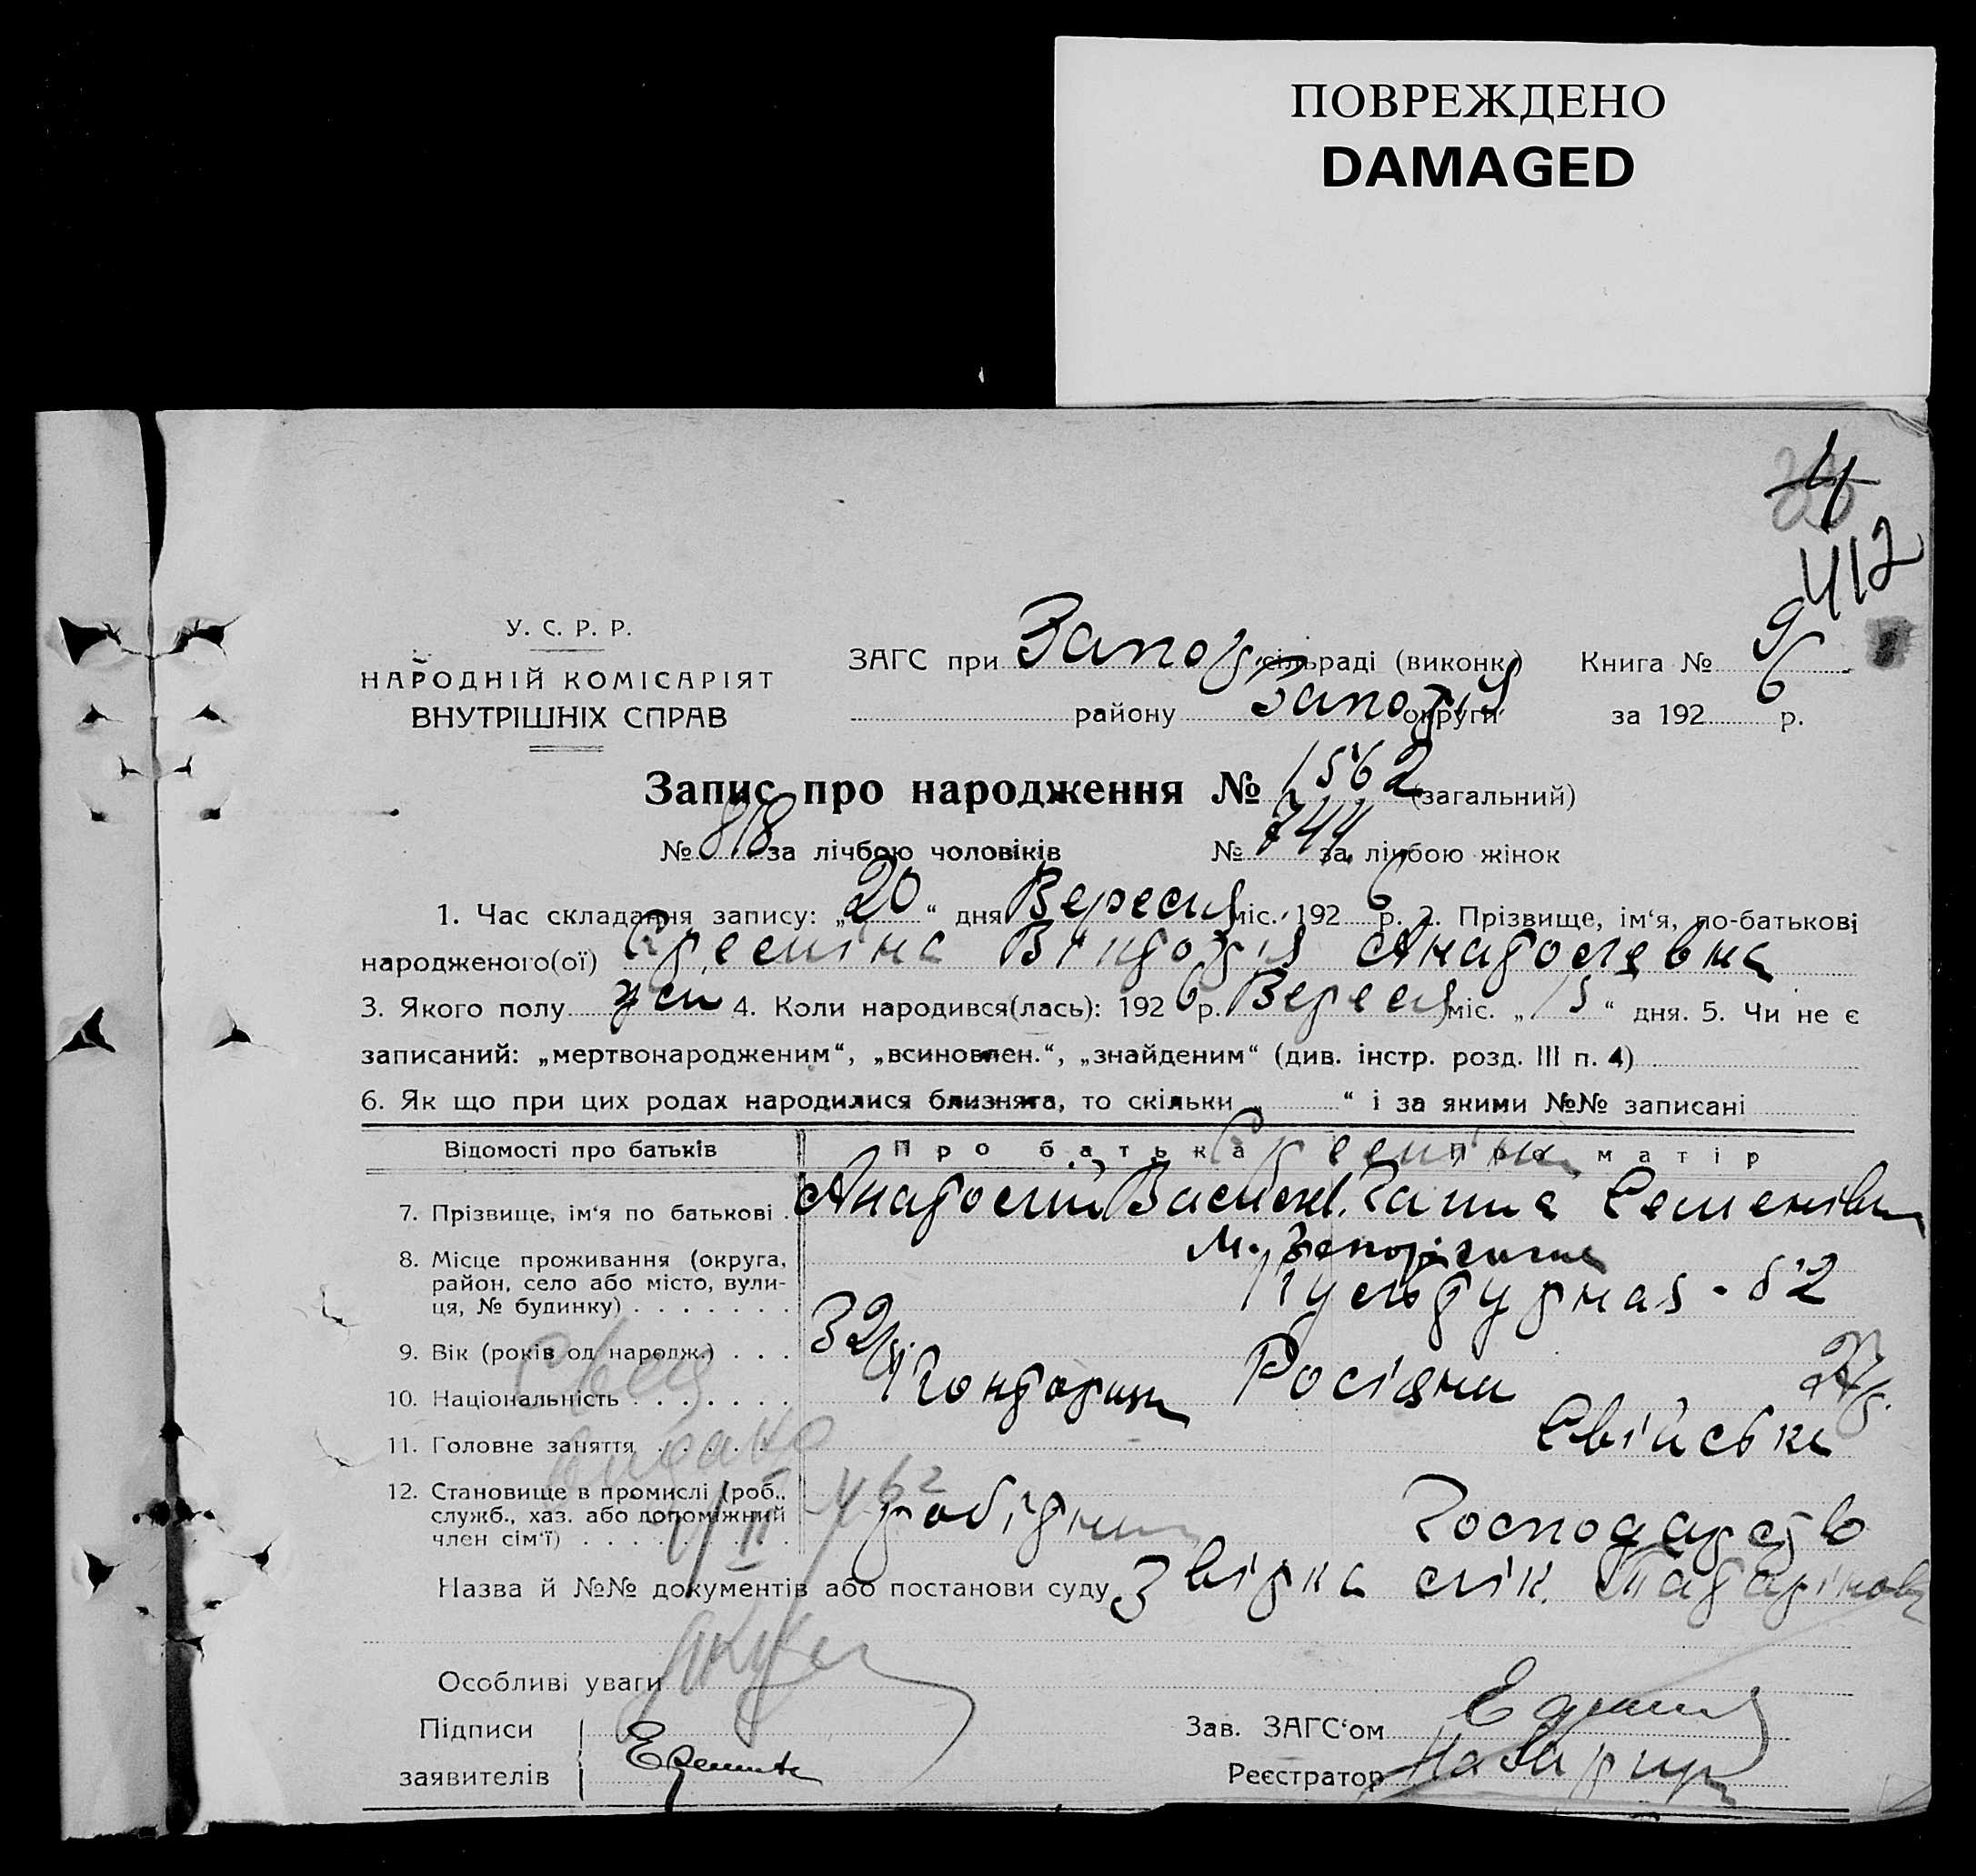 ПОВРЕЖДЕНО
DAMAGED
4
412
У. С. Р. Р.
НАРОДНІЙ КОМІСАРІЯТ
ВНУТРІШНІХ СПРАВ
ЗАГС при Запоріз. сільраді (виконк.) Книга № 9
району Запоріз округи за 1926 р.
Запис про народження № 1562 (загальний)
№ 818 за лічбою чоловіків № 744 за лічбою жінок
1. Час складання запису: „20“ дня Вересня міс. 1926 р. 2. Прізвище, ім‘я, по-батькові
народженого(ої) Вікторія Анатоліевна
3. Якого полу жін 4. Коли народився(лась): 1926 р. Вересня міс. „15“ дня. 5. Чи не є
записаний: „мертвонародженим“, „всиновлен.“, „знайденим“ (див. інстр. розд. III п. 4)
6. Як що при цих родах народилися близнята, то скільки „ “ і за якими №№ записані
Відомості про батьків Про батька Про матір
7. Прізвище, ім‘я по батькові Анатолий Васильов. Ганна Семенівна
8. Місце проживання (округа, м. Запоріжжя
район, село або місто, вули-
ця, № будинку) 52
9. Вік (років од народж.) 32 р. 27 р.
10. Національність Росіяни
11. Головне заняття Конторщик Свійське
12. Становище в промислі (роб.,
служб., хаз. або допоміжний робітник Господарство
член сім‘ї)
Назва й №№ документів або постанови суду Звірка лік.
Особливі уваги
Підписи Зав. ЗАГС‘ом
заявителів Реєстратор